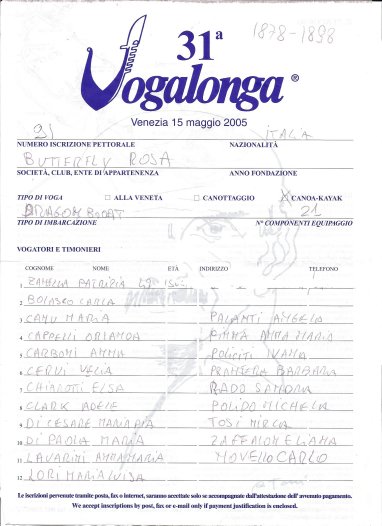 31ª
1878-1898
Vogalonga®
Venezia 15 maggio 2005
31 ITALIA
NUMERO ISCRIZIONE PETTORALE NAZIONALITÀ
BUTTERFLY ROSA
SOCIETÀ, CLUB, ENTE DI APPARTENENZA ANNO FONDAZIONE
TIPO DI VOGA □ ALLA VENETA □ CANOTTAGGIO X CANOA-KAYAK
DRAGOM BOOAT 21
TIPO DI IMBARCAZIONE N° COMPONENTI EQUIPAGGIO
VOGATORI E TIMONIERI
COGNOME NOME ETÀ INDIRIZZO TELEFONO
1 ZANELLA PATRIZIA
2 BOLASCO CARLA
3 CANU MARIA PALANTI ANGELA
4 CAPPELLI ORIANDA EMMA ANNA MARIA
5 CARBONI ANNA POLICITI IVANA
6 CERVI VELIA BARBARA
7 CHIAROTTI ELSA RADO SANDRA
8 CLARK ADELE POLIDO MICHELA
9 DI CESARE MARIA PIA TOSI MIRCA
10 DI PAOLA MARIA ZAFFALON ELIANA
11 LAVARINI ANNAMARIA NOVELLO CARLO
12 LORI MARIA LUISA
Le iscrizioni pervenute tramite posta, fax o internet, saranno accettate solo se accompagnate dall'attestazione dell' avvenuto pagamento.
We accept inscriptions by post, fax or e-mail only if payment justification is enclosed.